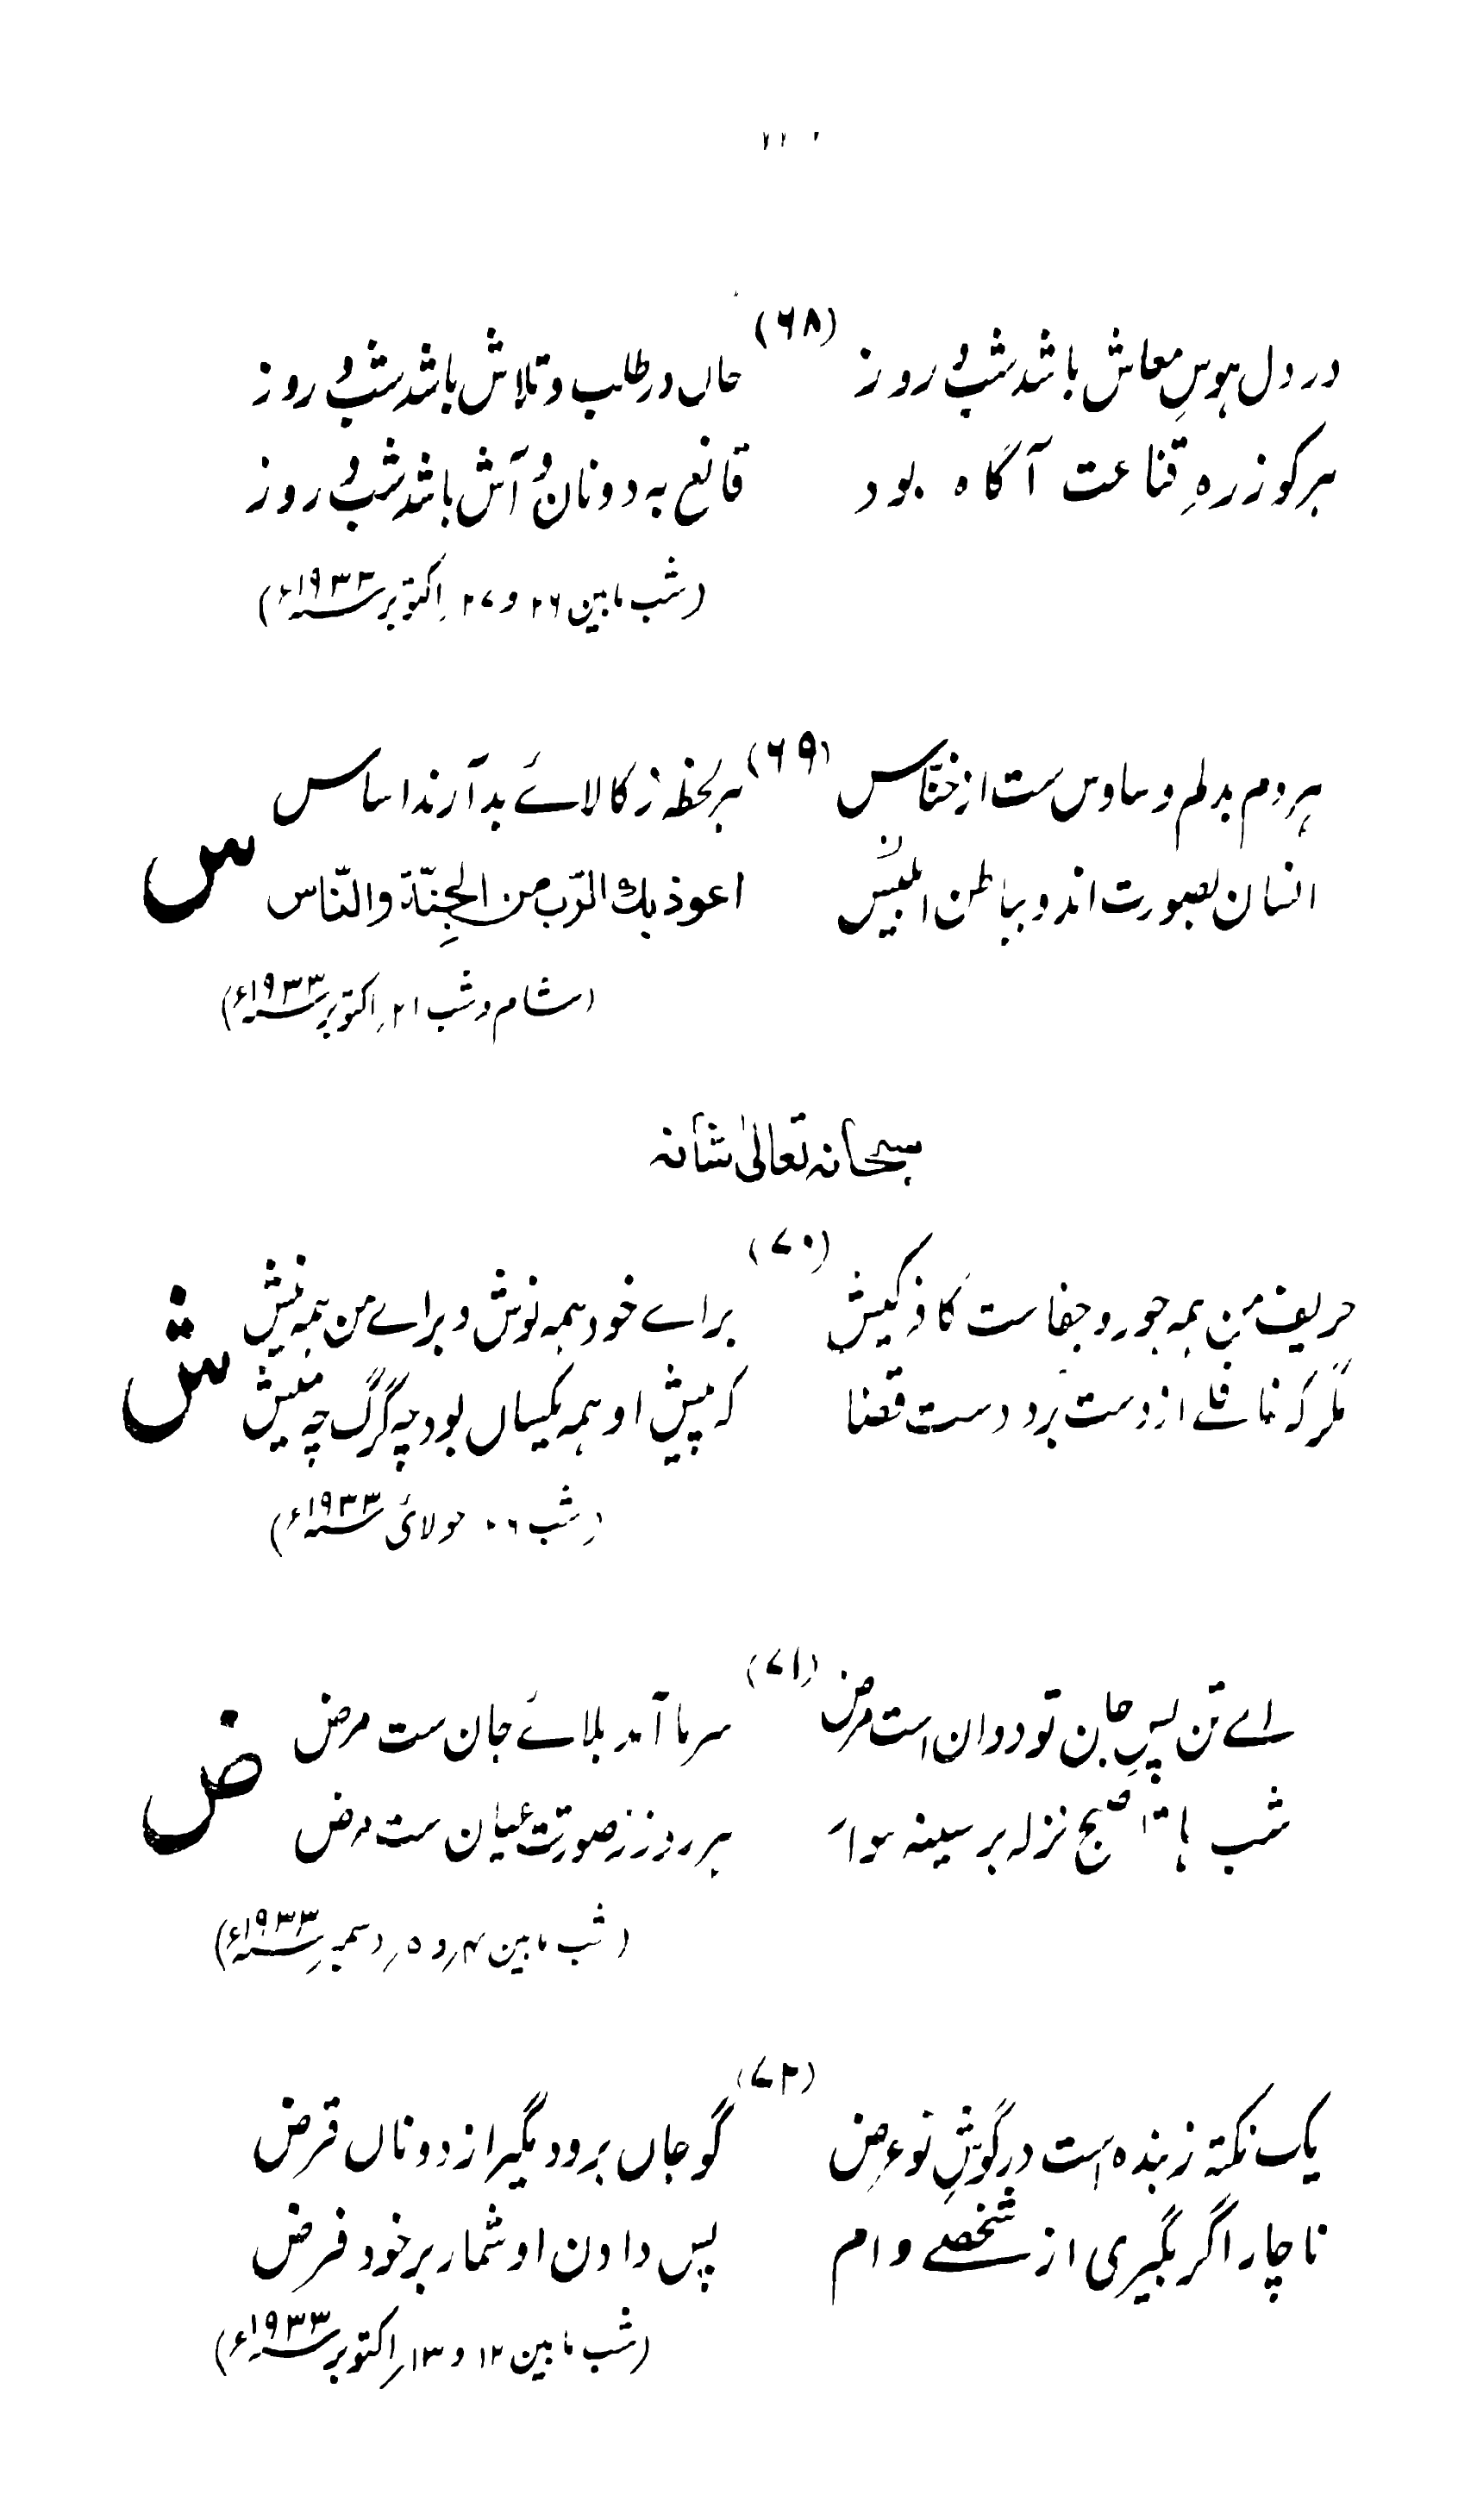 (۶۸)
در دل ہوسِ معاش باشد شب و روز جاں در طلب و تلاش باشد شب و روز
ہر کو زرہِ قناعت آگاہ بود قانع بہ دو نان و آش باشد شب و روز
(شب مابین ۲۶ و ۲۷ اکتوبر ۱۹۳۳ء)
(۶۹)
ہر دم بدلم وساوس ست از خنّاس ہر لحظہ ز کالائے بد آرند اساس
انسان بصورت اند و بباطن ابلیس اعوذ بك الرّب من الجِنّة والنّاس
س
(شام و شب ۲۱ اکتوبر ۱۹۳۳ء)
سبحانہ تعالیٰ شأنہ
(۷۰)
حریف من ہمہ جور و جفاست کافر کیش برائے خود ہمہ نوش و برائے من ہمہ نیش
مگر کہ غافل از دست برد دست قضا کہ پیش او ہمہ یکساں بود چہ گرگ چہ میش
ش
(شب ۰۶ جولائی ۱۹۳۳ء)
(۷۱)
اے تن پسِ جان تو دوان است مرض سرما آمد بلائے جان ست مرض
شب ہا تا صبح نزلہ بر سینہ سوار ہر روز ز صورت عیان ست مرض
ض
(شب مابین ۴ و ۵ دسمبر ۱۹۳۳ء)
(۷۲)
یک نکتہ زبندہ است در گوشِ تو عرض گو جاں برود مگیر از دوناں قرض
ناچار اگر بگیری از شخصے وام پس دادن او شمار بر خود فرض
(شب مابین ۱۲ و ۱۳ اکتوبر ۱۹۳۳ء)